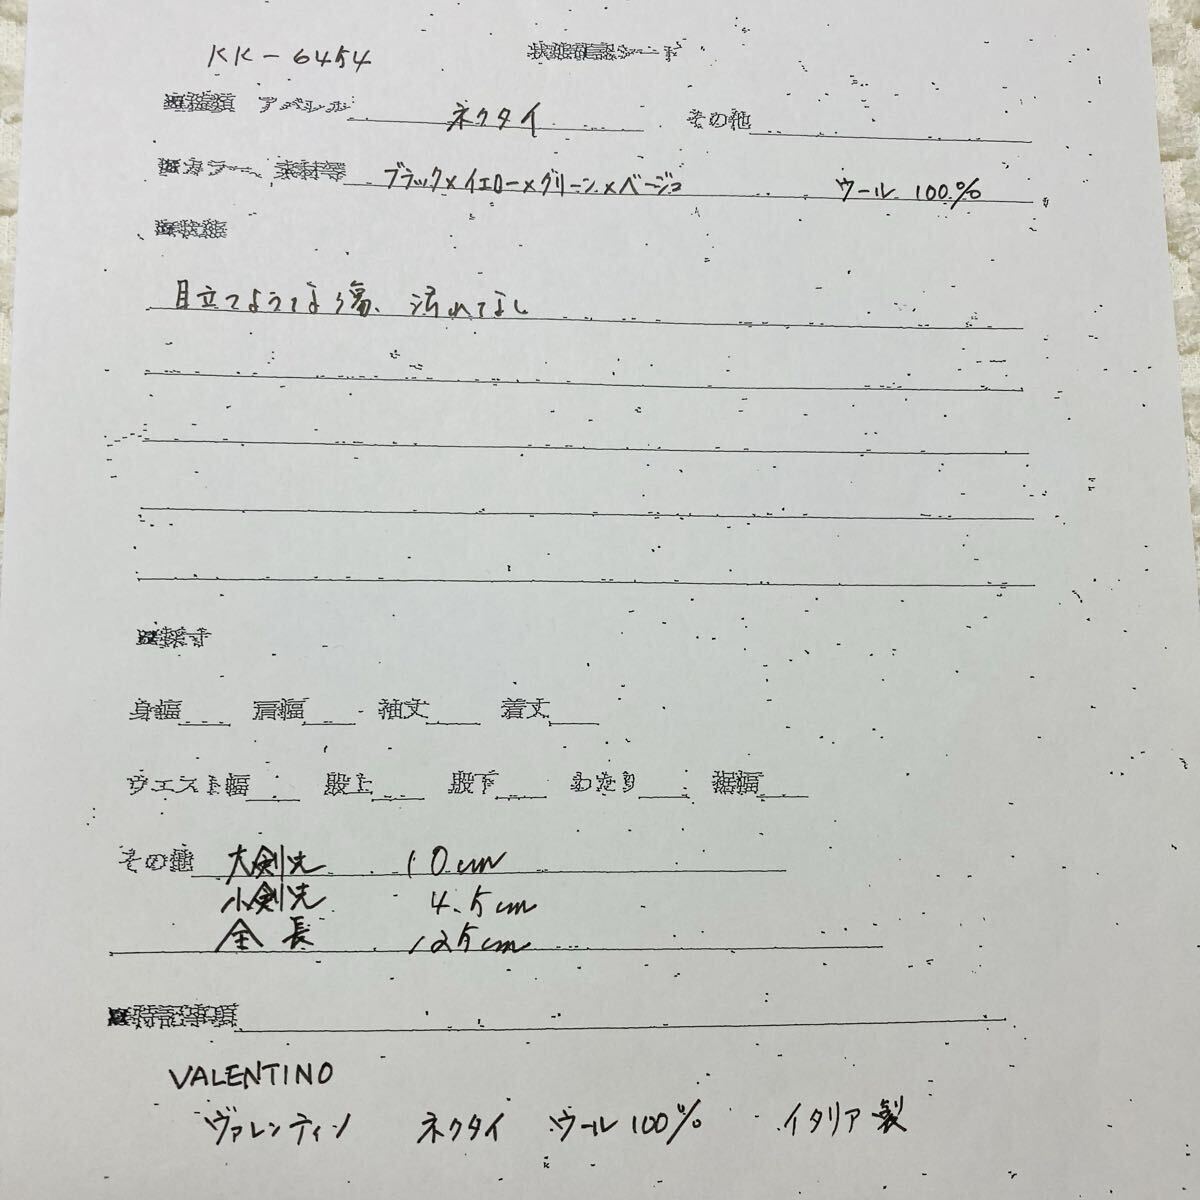 KK-6454 状態確認シート
■種類 アパレル ネクタイ その他
■カラー、素材等 ブラック×イエロー×グリーン×ベージュ ウール 100%
■状態
目立つような傷、汚れなし
■採寸
身幅 肩幅 袖丈 着丈
ウエスト幅 股上 股下 わたり 裾幅
その他 大剣先 10cm
小剣先 4.5cm
全長 125cm
■特記事項
VALENTINO
ヴァレンティノ ネクタイ ウール100% イタリア製